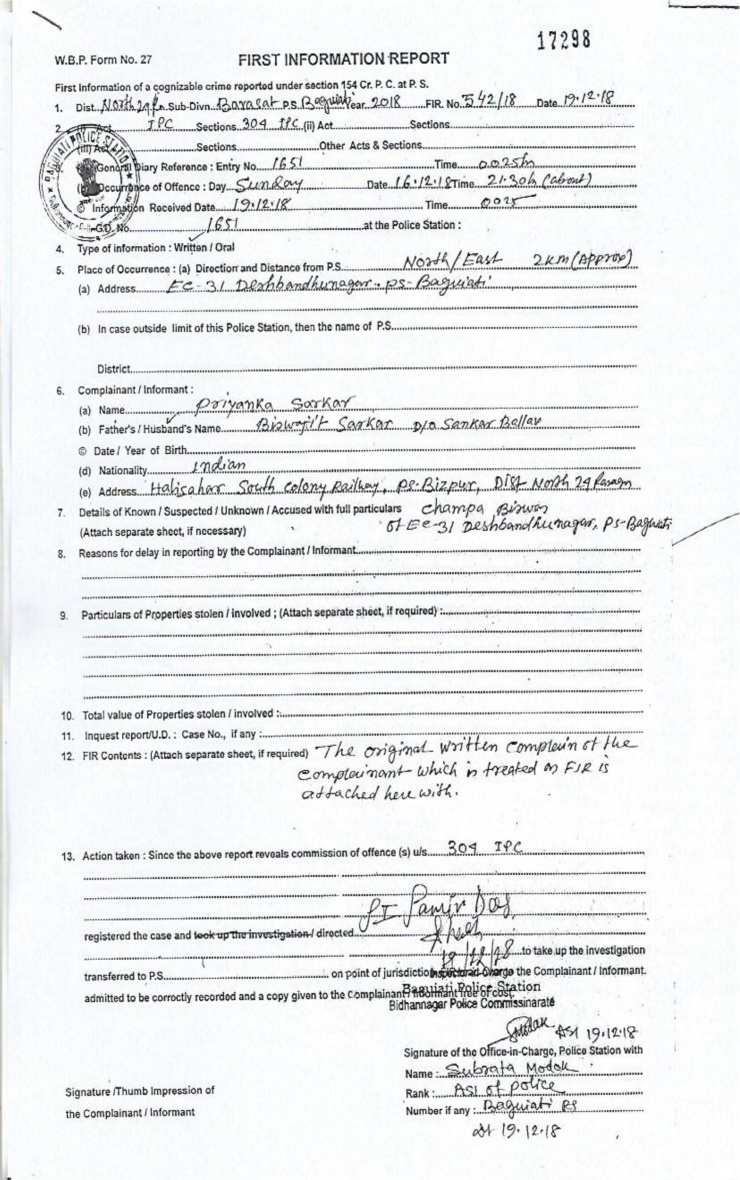 17298
W.B.P. Form No. 27 FIRST INFORMATION REPORT
First Information of a cognizable crime reported under section 154 Cr. P. C. at P. S.
1. Dist. North 24 Pn Sub-Divn. Barasat P.S. Baguiati Year 2018 FIR. No. 542/18 Date 19.12.18
2. Act IPC Sections 304 IPC (ii) Act Sections
(iii) Act Sections Other Acts & Sections
General Diary Reference : Entry No. 1651 Time 0025h
Occurrence of Offence : Day Sunday Date 16.12.18 Time 21.30h (about)
© Information Received Date 19.12.18 Time 0025
G.D. No. 1651 at the Police Station :
4. Type of information : Written / Oral
5. Place of Occurrence : (a) Direction and Distance from P.S. North/East 2km (Approx)
(a) Address EC-31 Deshbandhunagar, PS-Baguiati
(b) In case outside limit of this Police Station, then the name of P.S.
District
6. Complainant / Informant :
(a) Name Priyanka Sarkar
(b) Father's / Husband's Name Biswajit Sarkar D/o Sankar Bollav
© Date / Year of Birth
(d) Nationality Indian
(e) Address Halisahar South Colony Railway, PS-Bizpur, Dist North 24
7. Details of Known / Suspected / Unknown / Accused with full particulars Champa Biswas
(Attach separate sheet, if necessary) of Ec-31 Deshbandhunagar, PS-Baguiati
8. Reasons for delay in reporting by the Complainant / Informant
9. Particulars of Properties stolen / involved ; (Attach separate sheet, if required) :
10. Total value of Properties stolen / involved :
11. Inquest report/U.D. : Case No., if any :
12. FIR Contents : (Attach separate sheet, if required) The original written complain of the
complainant which is treated as FIR is
attached here with.
13. Action taken : Since the above report reveals commission of offence (s) u/s 304 IPC
SI Samir Das
registered the case and took up the investigation / directed
19/12/18 to take up the investigation
transferred to P.S. on point of jurisdiction Inspector-in-Charge the Complainant / Informant.
admitted to be correctly recorded and a copy given to the Complainant / Informant free of cost.
Baguiati Police Station
Bidhannagar Police Commissinarate
ASI 19.12.18
Signature of the Office-in-Charge, Police Station with
Name : Subrata Modok
Signature /Thumb Impression of Rank : ASI of police
the Complainant / Informant Number if any : Baguiati PS
dt 19.12.18